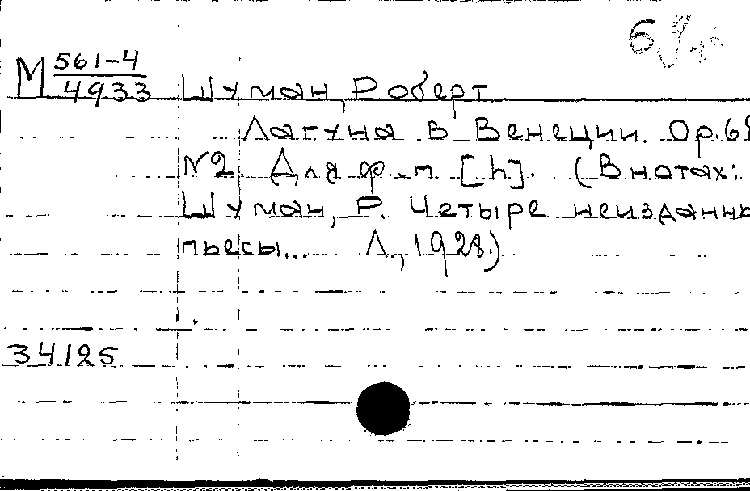 М 561-4/4933 Шуман, Роберт
Лагуна в Венеции. Op.68
№2 Для ф-п. [h]. (В нотах:
Шуман, Р. Четыре неизданны
пьесы... Л., 1928)
34125